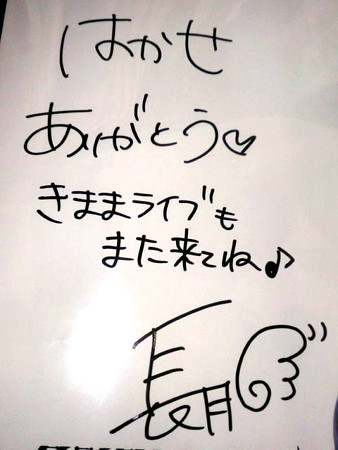 はかせ
ありがとう♡
きままライブも
また来てね♪
長月